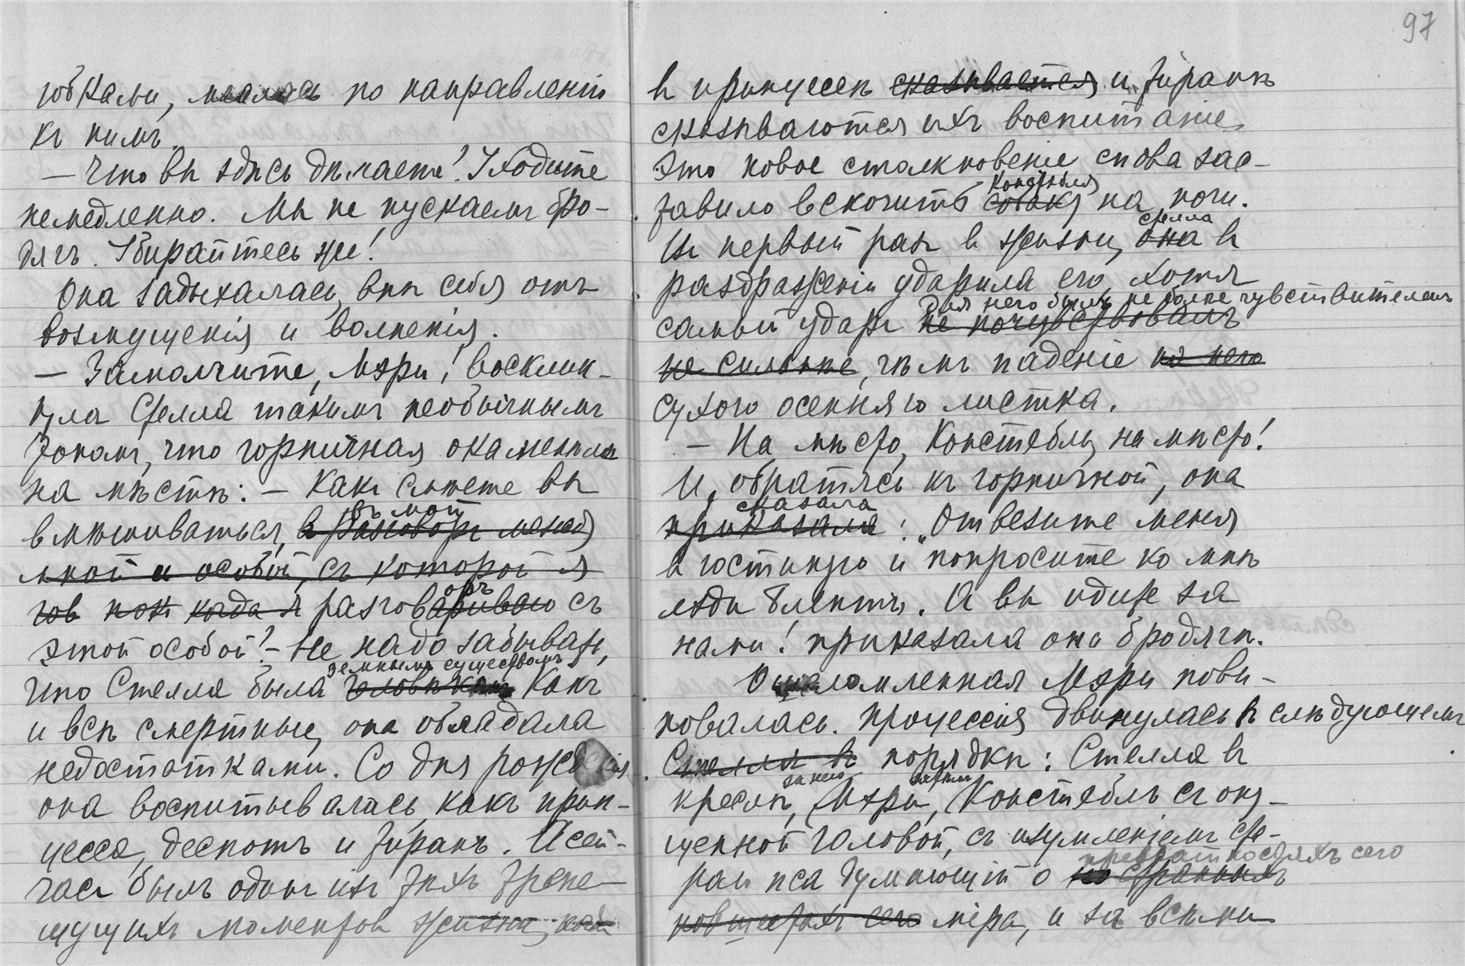 97
юбками, мчалась по направленію
къ нимъ.
— Что вы здѣсь дѣлаете! Уходите
немедленно. Мы не пускаемъ бро-
дягъ. Убирайтесь же!
Она задыхалась, внѣ себя отъ
возмущенія и волненія.
— Замолчите, Мэри! воскликъ-
нула Стелла такимъ необычнымъ
тономъ, что горничная окаменѣла
на мѣстѣ: — Какъ смѣете вы
въ мой
вмѣшиваться, въ разговоръ между
мной и особой, съ которой я
оръ
когда я разговариваю съ
этой особой! — Не надо забывать,
земнымъ существомъ
что Стелла была человѣкомъ Какъ
и всѣ смертные, она обладала
недостатками. Со дня рожденія
она воспитывалась, какъ прин-
цесса, деспотъ и тиранъ. И сей-
часъ былъ одинъ изъ тѣхъ трепе-
щущихъ моментовъ жизни, когда
въ принцессѣ сказывается и тиранѣ
сказываются ихъ воспитаніе.
Это новое столкновеніе снова зас-
Констебля
тавило вскочить собаку на ноги.
Стелла
Въ первый разъ в жизни, она въ
раздраженіи ударила его, хотя
для него былъ не болѣе чувствителенъ
самый ударъ не почувствовалъ
не сильнѣе, чѣмъ паденіе на него
сухого осенняго листка.
— На мѣсто, Констебль, на мѣсто!
И, обратясь къ горничной, она
сказала
приказала: „Отвезите меня
въ гостиную и попросите ко мнѣ
лэди Блентъ. А вы идите за
нами! приказала она бродягѣ.
Ошеломленная Мэри пови-
новалась. Процессія двинулась въ слѣдующемъ
Стелла въ порядкѣ: Стелла въ
за нею затѣмъ
креслѣ, Мэри, Констебль съ опу-
щенной головой, съ изумленіемъ ста-
превратностяхъ сего
раго пса думающій о странныхъ
сего міра, и за всѣми